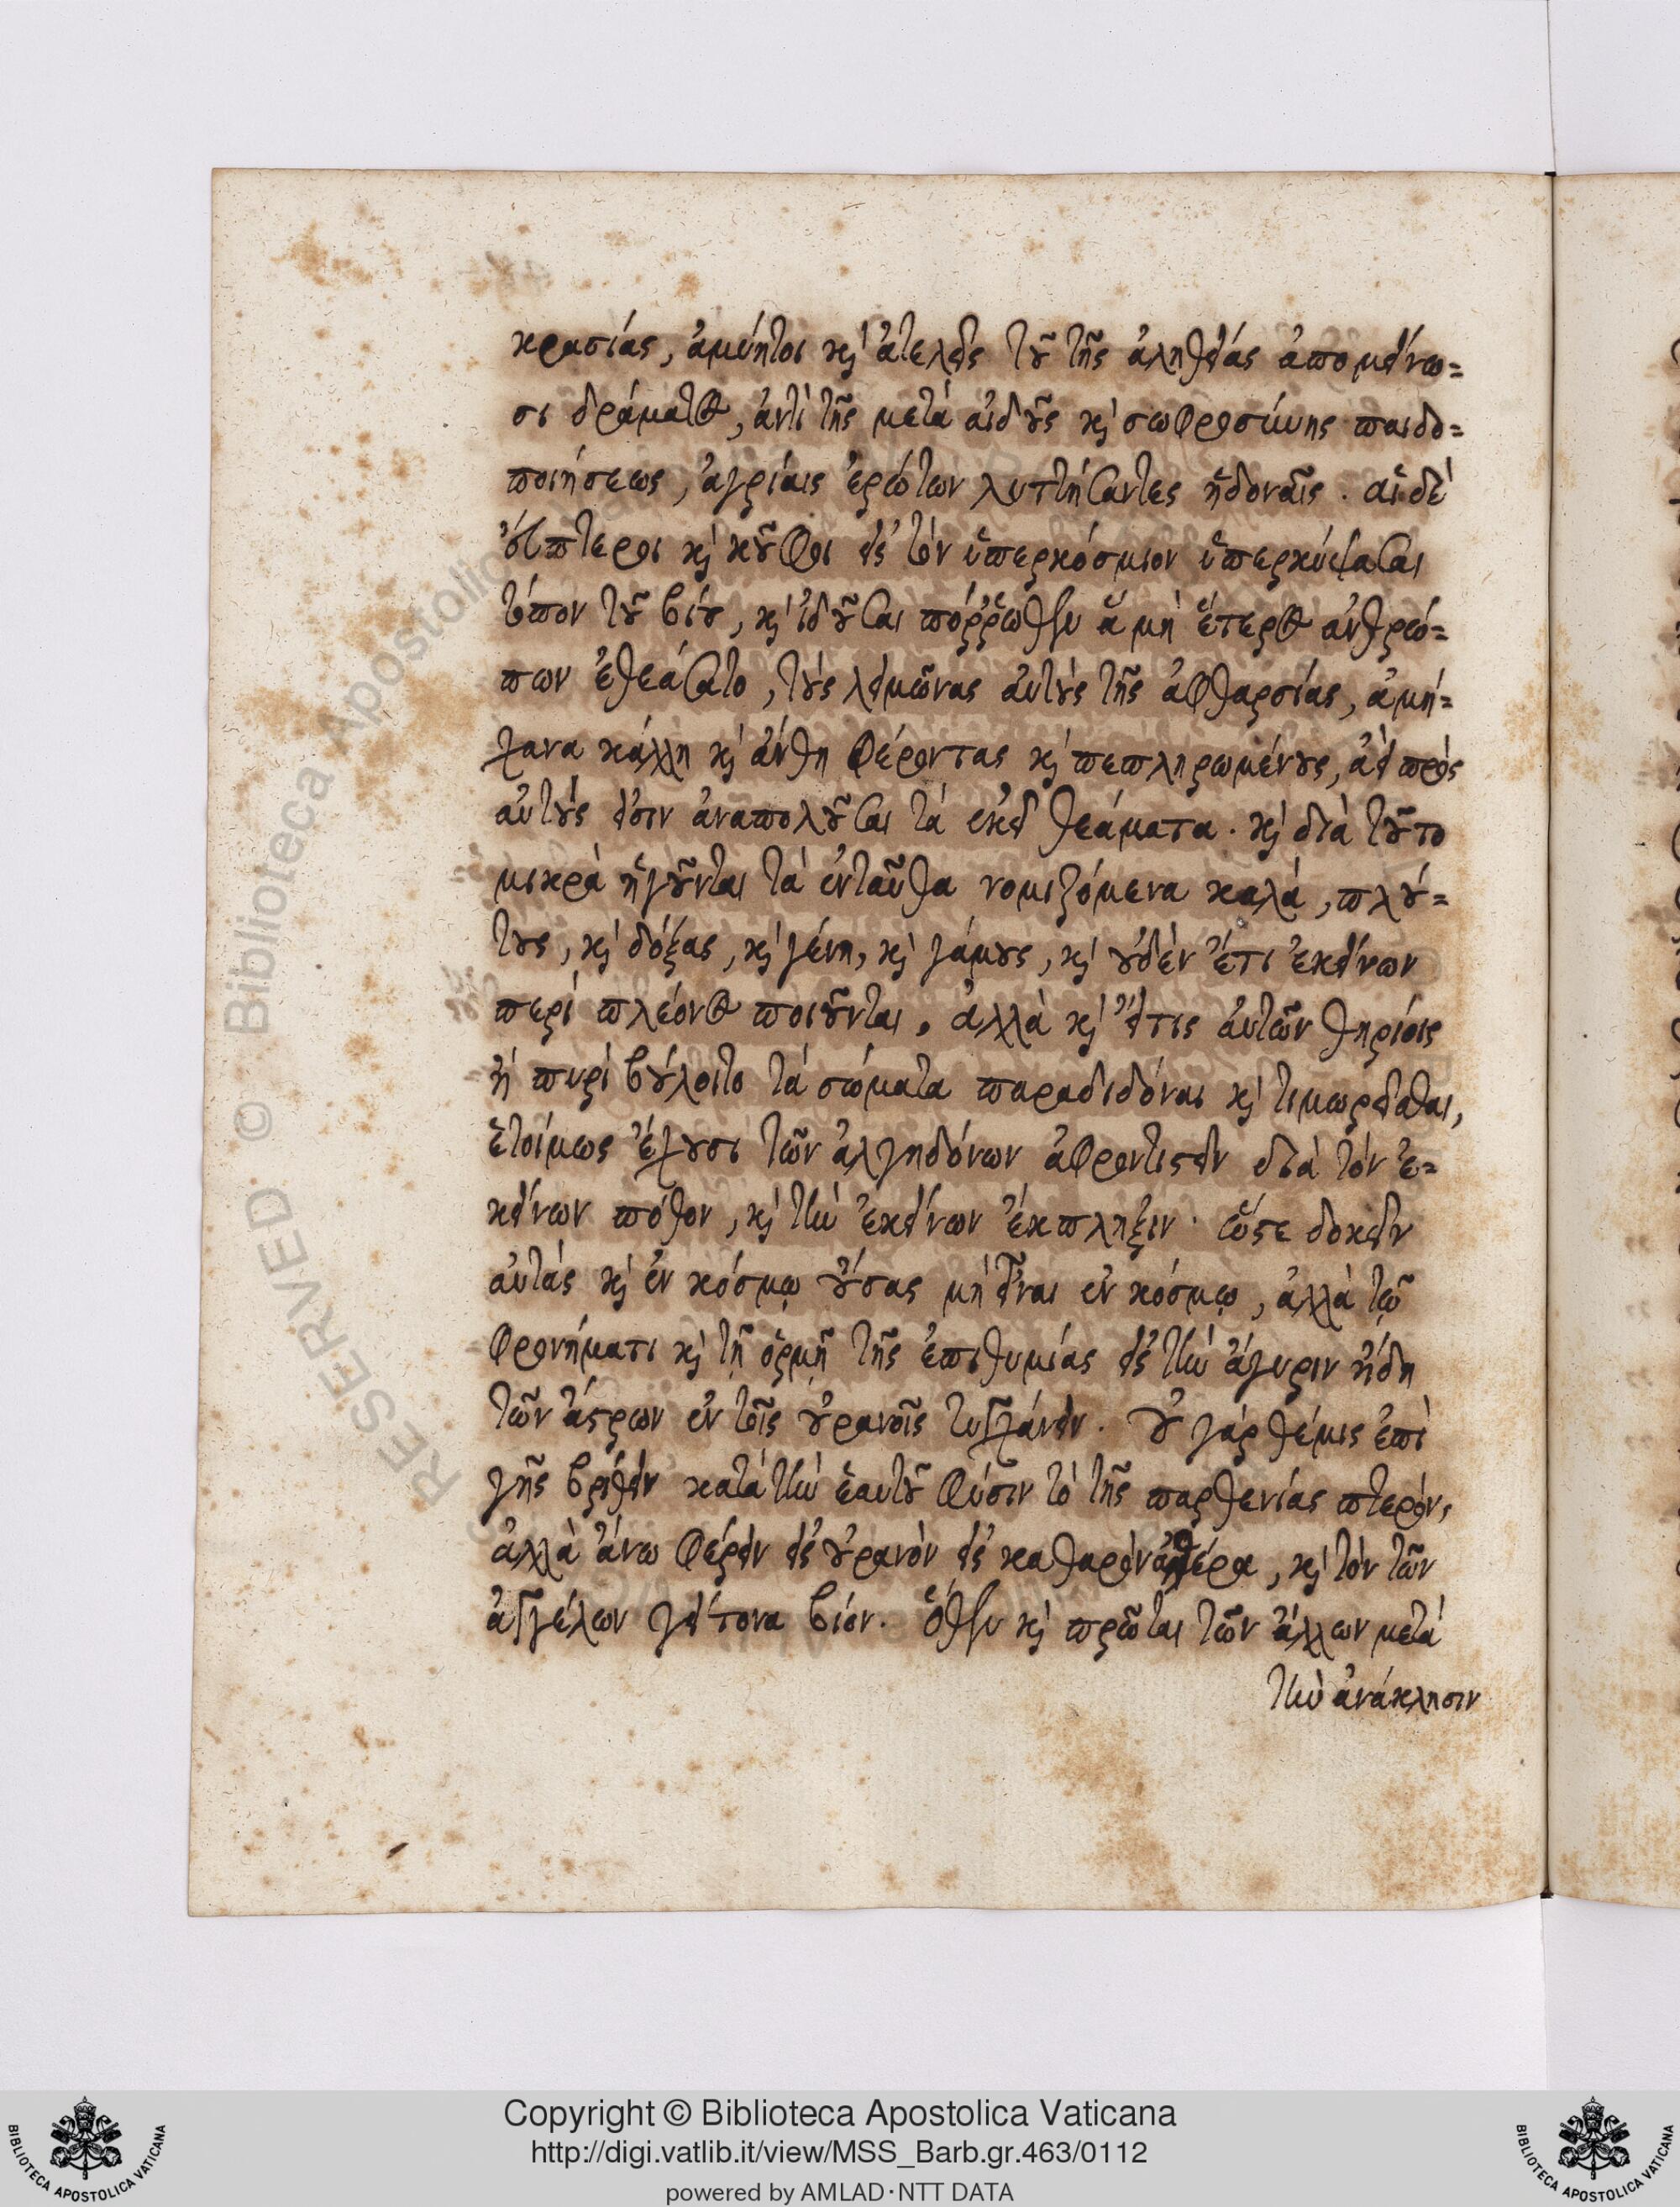 κρασίας, ἀμύητοι κ̀ ἀτελεῖς τοῦ τῆς ἀληθείας ἀπομείνω=
σι δράματος, ἀντὶ τῆς μετὰ αἰδοῦς κ̀ σωφροσύνης παιδο=
ποιήσεως, ἀγρίαις ἐρώτων λυττήσαντες ἡδοναῖς. αἱ δὲ
ὀξύπτεροι κ̀ κοῦφοι εἰς τὸν ὑπερκόσμιον ὑπερκύψασαι
τόπον τοῦ βίου, κ̀ ἰδοῦσαι πόῤῥωθεν ἃ μὴ ἕτερος ἀνθρώ=
πων ἐθεάσατο, τοὺς λειμῶνας αὐτοὺς τῆς ἀφθαρσίας, ἀμή=
χανα κάλλη κ̀ ἄνθη φέροντας κ̀ πεπληρωμένους, ἀεὶ πρὸς
αὐτούς εἰσιν ἀναπολοῦσαι τὰ ἐκεῖ θεάματα. κ̀ διὰ τοῦτο
μικρὰ ἡγοῦνται τὰ ἐνταῦθα νομιζόμενα καλά, πλού=
τους, κ̀ δόξας, κ̀ γένη, κ̀ γάμους, κ̀ οὐδὲν ἔτι ἐκείνων
περὶ πλέονος ποιοῦνται. ἀλλὰ κ̀ εἴτις αὐτῶν θηρίοις
ἢ πυρὶ βούλοιτο τὰ σώματα παραδιδόναι κ̀ τιμωρεῖσθαι,
ἑτοίμως ἔχουσι τῶν ἀλγηδόνων ἀφροντιστεῖν διὰ τὸν ἐ=
κείνων πόθον, κ̀ τὴν ἐκείνων ἔκπληξιν· ὥστε δοκεῖν
αὐτὰς κ̀ ἐν κόσμῳ οὔσας μὴ εἶναι ἐν κόσμῳ, ἀλλὰ τῷ
φρονήματι κ̀ τῇ ὁρμῇ τῆς ἐπιθυμίας εἰς τὴν ἄγυριν ἤδη
τῶν ἄστρων ἐν τοῖς οὐρανοῖς τυγχάνειν. οὐ γὰρ θέμις ἐπὶ
γῆς βρίθειν κατὰ τὴν ἑαυτοῦ φύσιν τὸ τῆς παρθενίας πτερόν,
ἀλλὰ ἄνω φέρειν εἰς οὐρανὸν εἰς καθαρὸν αἰθέρα, κ̀ τὸν τῶν
ἀγγέλων γείτονα βίον. ὅθεν κ̀ πρῶται τῶν ἄλλων μετὰ
τὴν ἀνάκλησιν
RESERVED © Biblioteca Apostolic
Copyright © Biblioteca Apostolica Vaticana
http://digi.vatlib.it/view/MSS_Barb.gr.463/0112
powered by AMLAD·NTT DATA
BIBLIOTECA APOSTOLICA VATICANA
BIBLIOTECA APOSTOLICA VATICANA